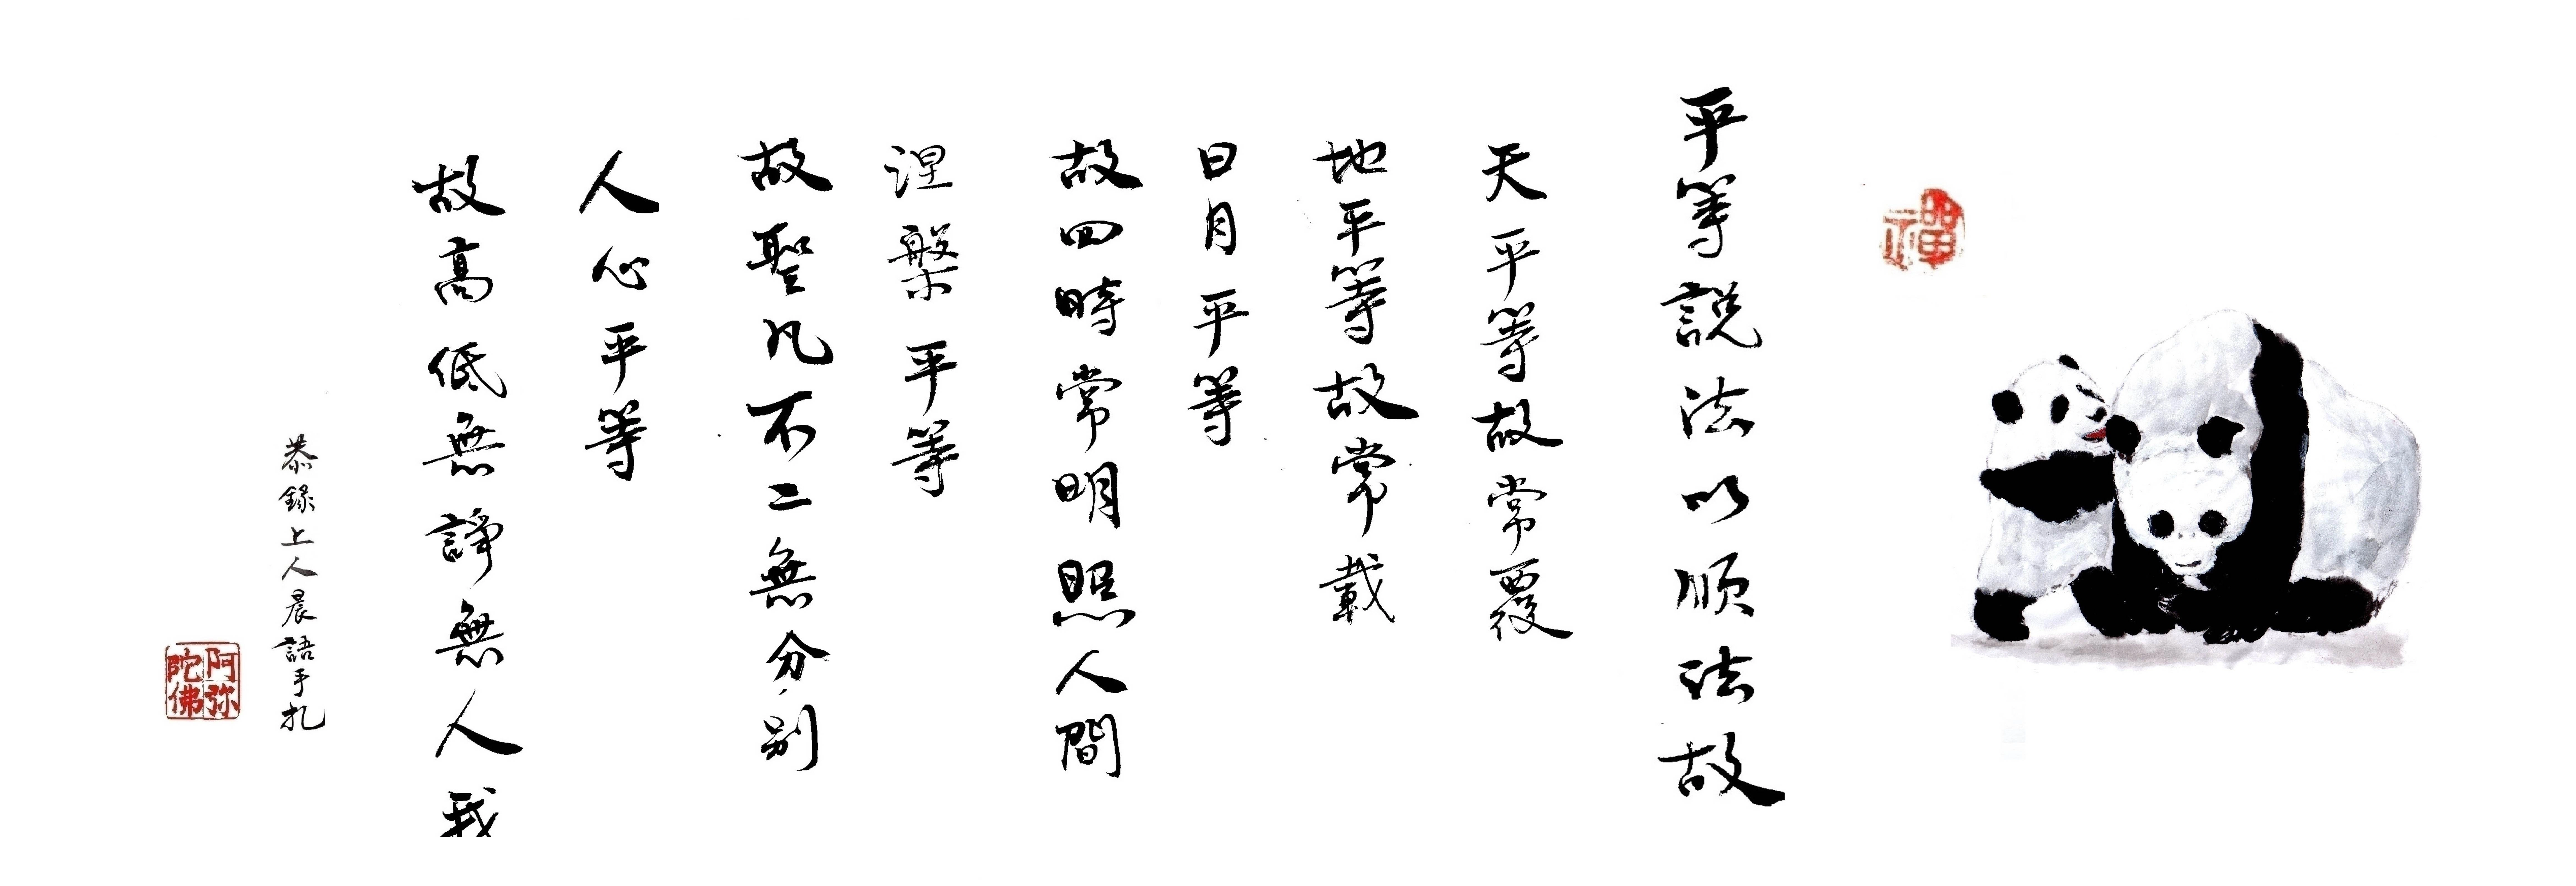 禪
平等說法以順法故
天平等故常覆
地平等故常載
日月平等
故四時常明照人間
涅槃平等
故聖凡不二無分别
人心平等
故高低無諍無人我
恭錄上人晨語手扎
阿弥陀佛